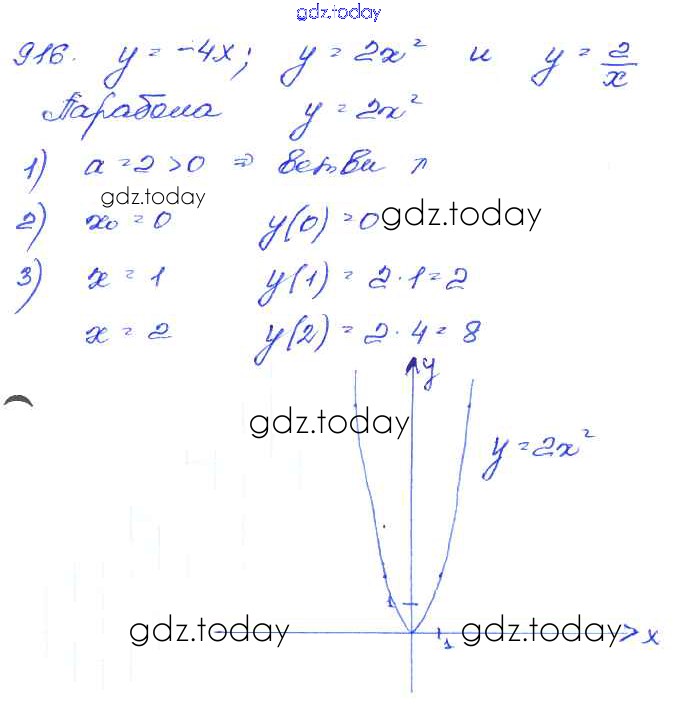 gdz.today
916. y = -4x; y = 2x² и y = 2/x
Парабола y = 2x²
1) a = 2 > 0 ⇒ ветви ↑
gdz.today
2) x₀ = 0 y(0) = 0 gdz.today
3) x = 1 y(1) = 2·1 = 2
x = 2 y(2) = 2·4 = 8
y
gdz.today
y = 2x²
1
gdz.today gdz.today x
1